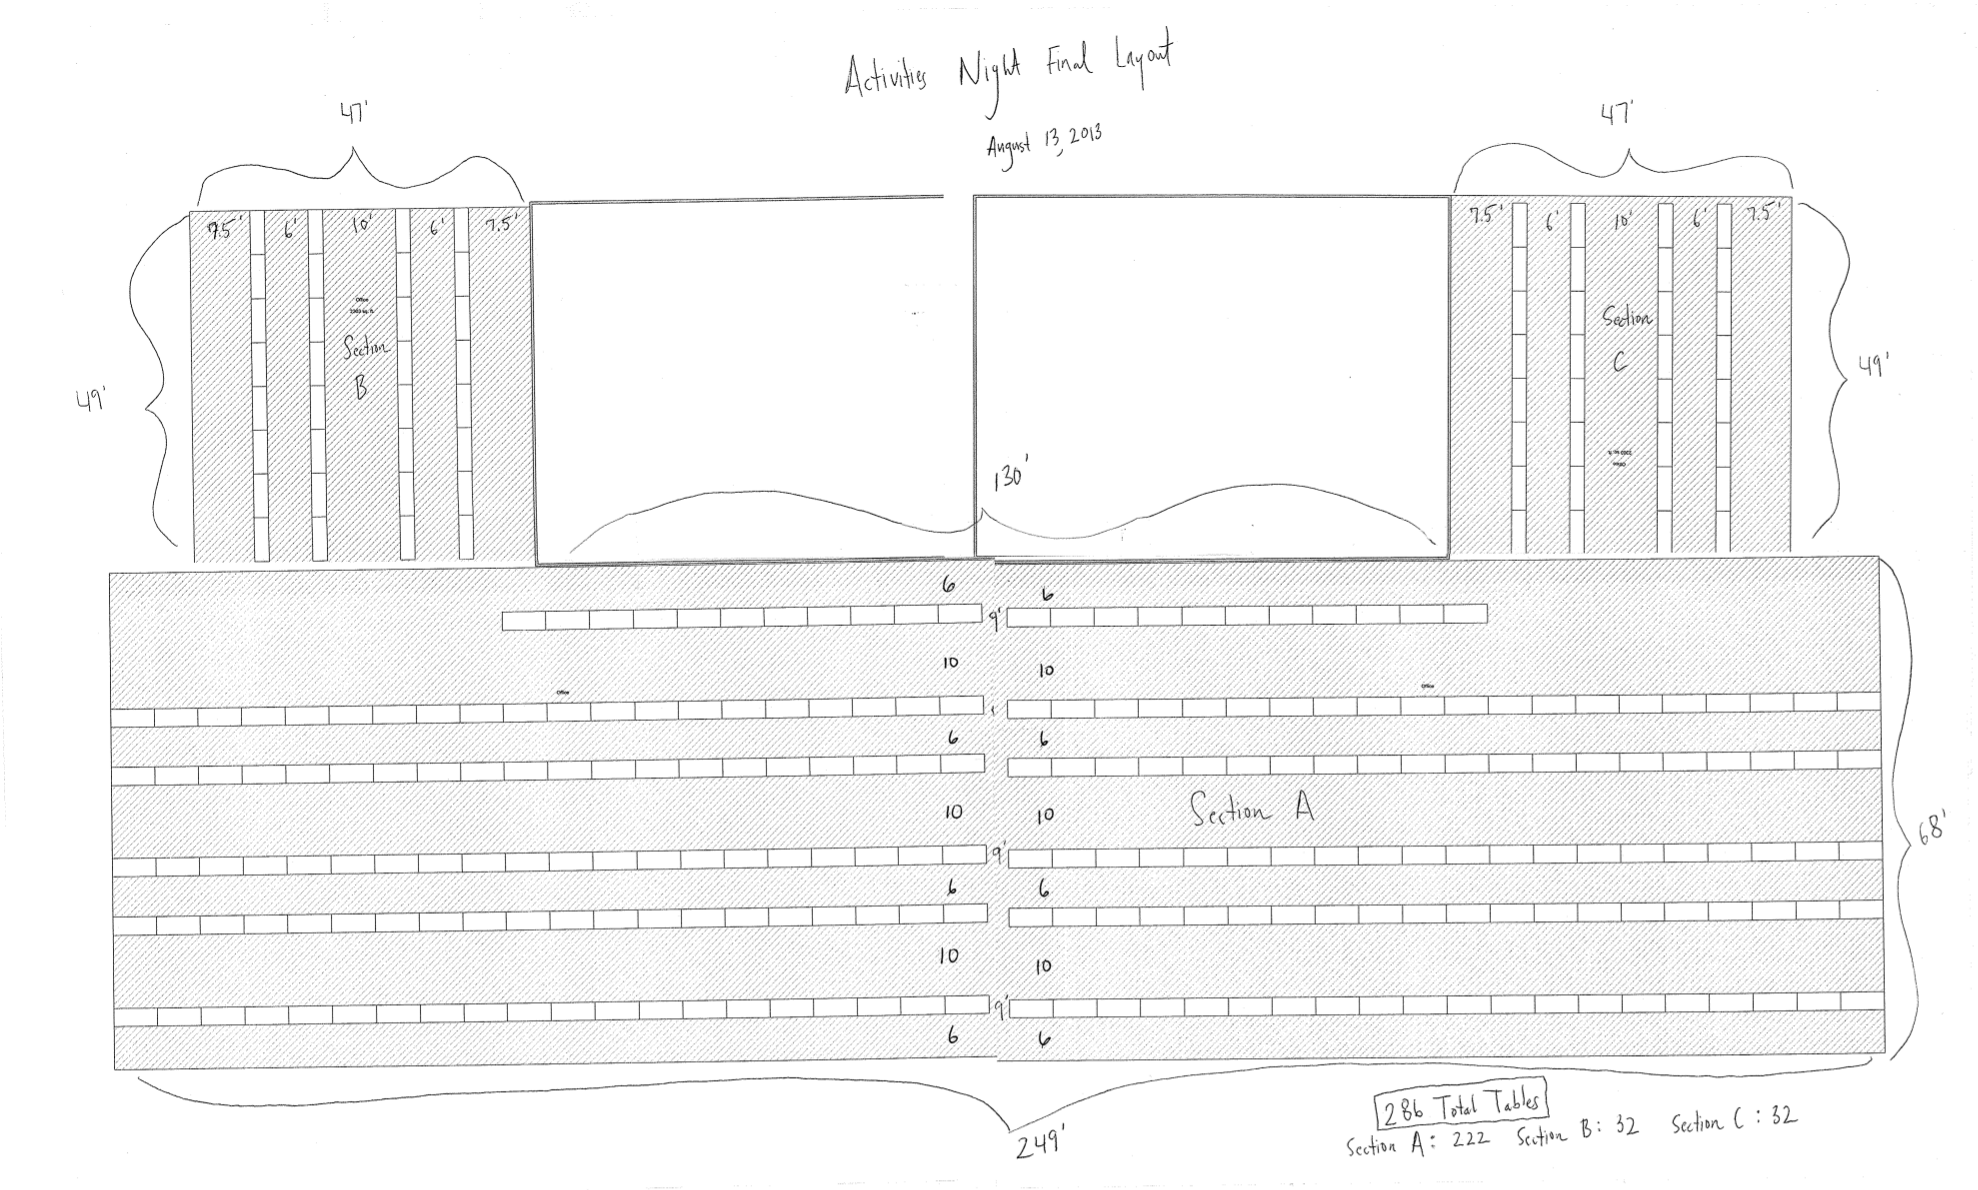 Activities Night Final Layout
August 13, 2013
47'
47'
7.5' 6' 10' 6' 7.5'
7.5' 6' 10' 6' 7.5'
Office
2303 sq. ft.
Section
B
Section
C
Office
49'
49'
130'
6 6
9'
10 10
Office
Office
6 6
10 10
Section A
9'
6 6
68'
10 10
9'
6 6
249'
286 Total Tables
Section A: 222 Section B: 32 Section C: 32